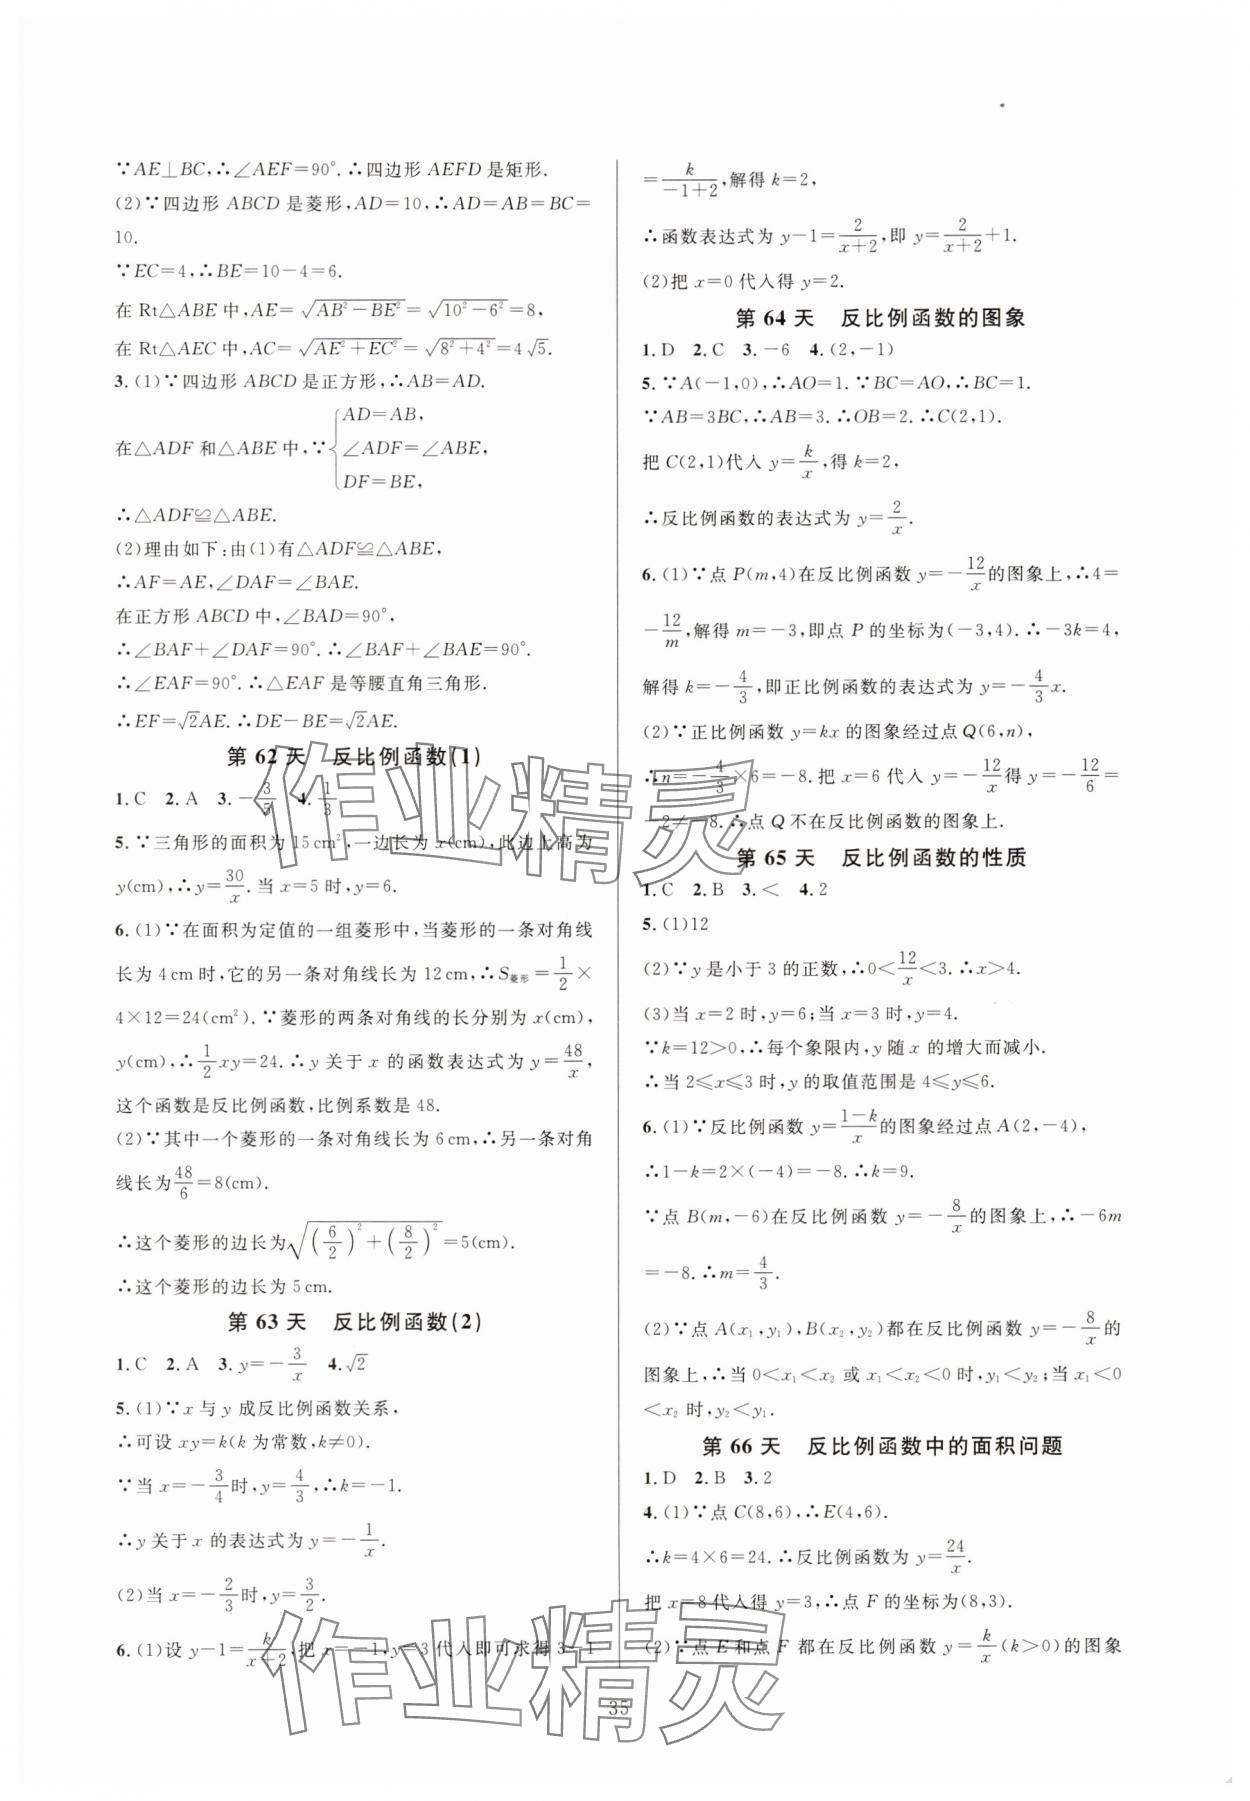 ∵AE⊥BC,∴∠AEF=90°.∴四边形 AEFD 是矩形.
(2)∵四边形 ABCD 是菱形,AD=10,∴AD=AB=BC=
10.
∵EC=4,∴BE=10-4=6.
在 Rt△ABE 中,AE=√(AB²-BE²)=√(10²-6²)=8,
在 Rt△AEC 中,AC=√(AE²+EC²)=√(8²+4²)=4√5.
3.(1)∵四边形 ABCD 是正方形,∴AB=AD.
在△ADF 和△ABE 中,∵{AD=AB,
∠ADF=∠ABE,
DF=BE,
∴△ADF≌△ABE.
(2)理由如下:由(1)有△ADF≌△ABE,
∴AF=AE,∠DAF=∠BAE.
在正方形 ABCD 中,∠BAD=90°,
∴∠BAF+∠DAF=90°.∴∠BAF+∠BAE=90°.
∴∠EAF=90°.∴△EAF 是等腰直角三角形.
∴EF=√2AE.∴DE-BE=√2AE.
第 62 天 反比例函数(1)
1.C 2.A 3.-3/5 4.1/3
5.∵三角形的面积为 15 cm²,一边长为 x(cm),此边上高为
y(cm),∴y=30/x.当 x=5 时,y=6.
6.(1)∵在面积为定值的一组菱形中,当菱形的一条对角线
长为 4 cm 时,它的另一条对角线长为 12 cm,∴S菱形=1/2×
4×12=24(cm²).∵菱形的两条对角线的长分别为 x(cm),
y(cm),∴1/2xy=24.∴y 关于 x 的函数表达式为 y=48/x,
这个函数是反比例函数,比例系数是 48.
(2)∵其中一个菱形的一条对角线长为 6 cm,∴另一条对角
线长为48/6=8(cm).
∴这个菱形的边长为√((6/2)²+(8/2)²)=5(cm).
∴这个菱形的边长为 5 cm.
第 63 天 反比例函数(2)
1.C 2.A 3.y=-3/x 4.√2
5.(1)∵x 与 y 成反比例函数关系,
∴可设 xy=k(k 为常数,k≠0).
∵当 x=-3/4时,y=4/3,∴k=-1.
∴y 关于 x 的表达式为 y=-1/x.
(2)当 x=-2/3时,y=3/2.
6.(1)设 y-1=k/(x+2),把 x=-1,y=3 代人即可求得 3-1
=k/(-1+2),解得 k=2,
∴函数表达式为 y-1=2/(x+2),即 y=2/(x+2)+1.
(2)把 x=0 代入得 y=2.
第 64 天 反比例函数的图象
1.D 2.C 3.-6 4.(2,-1)
5.∵A(-1,0),∴AO=1.∵BC=AO,∴BC=1.
∵AB=3BC,∴AB=3.∴OB=2.∴C(2,1).
把 C(2,1)代入 y=k/x,得 k=2,
∴反比例函数的表达式为 y=2/x.
6.(1)∵点 P(m,4)在反比例函数 y=-12/x的图象上,∴4=
-12/m,解得 m=-3,即点 P 的坐标为(-3,4).∴-3k=4,
解得 k=-4/3,即正比例函数的表达式为 y=-4/3x.
(2)∵正比例函数 y=kx 的图象经过点 Q(6,n),
∴n=-4/3×6=-8.把 x=6 代入 y=-12/x得 y=-12/6=
-2≠-8.∴点 Q 不在反比例函数的图象上.
第 65 天 反比例函数的性质
1.C 2.B 3.< 4.2
5.(1)12
(2)∵y 是小于 3 的正数,∴0<12/x<3.∴x>4.
(3)当 x=2 时,y=6;当 x=3 时,y=4.
∵k=12>0,∴每个象限内,y 随 x 的增大而减小.
∴当 2≤x≤3 时,y 的取值范围是 4≤y≤6.
6.(1)∵反比例函数 y=(1-k)/x的图象经过点 A(2,-4),
∴1-k=2×(-4)=-8.∴k=9.
∵点 B(m,-6)在反比例函数 y=-8/x的图象上,∴-6m
=-8.∴m=4/3.
(2)∵点 A(x₁,y₁),B(x₂,y₂)都在反比例函数 y=-8/x的
图象上,∴当 0<x₁<x₂ 或 x₁<x₂<0 时,y₁<y₂;当 x₁<0
<x₂ 时,y₂<y₁.
第 66 天 反比例函数中的面积问题
1.D 2.B 3.2
4.(1)∵点 C(8,6),∴E(4,6).
∴k=4×6=24.∴反比例函数为 y=24/x.
把 x=8代人得 y=3,∴点 F 的坐标为(8,3).
(2)∵点 E和点 F 都在反比例函数 y=k/x(k>0)的图象
35
作业精灵
作业精灵